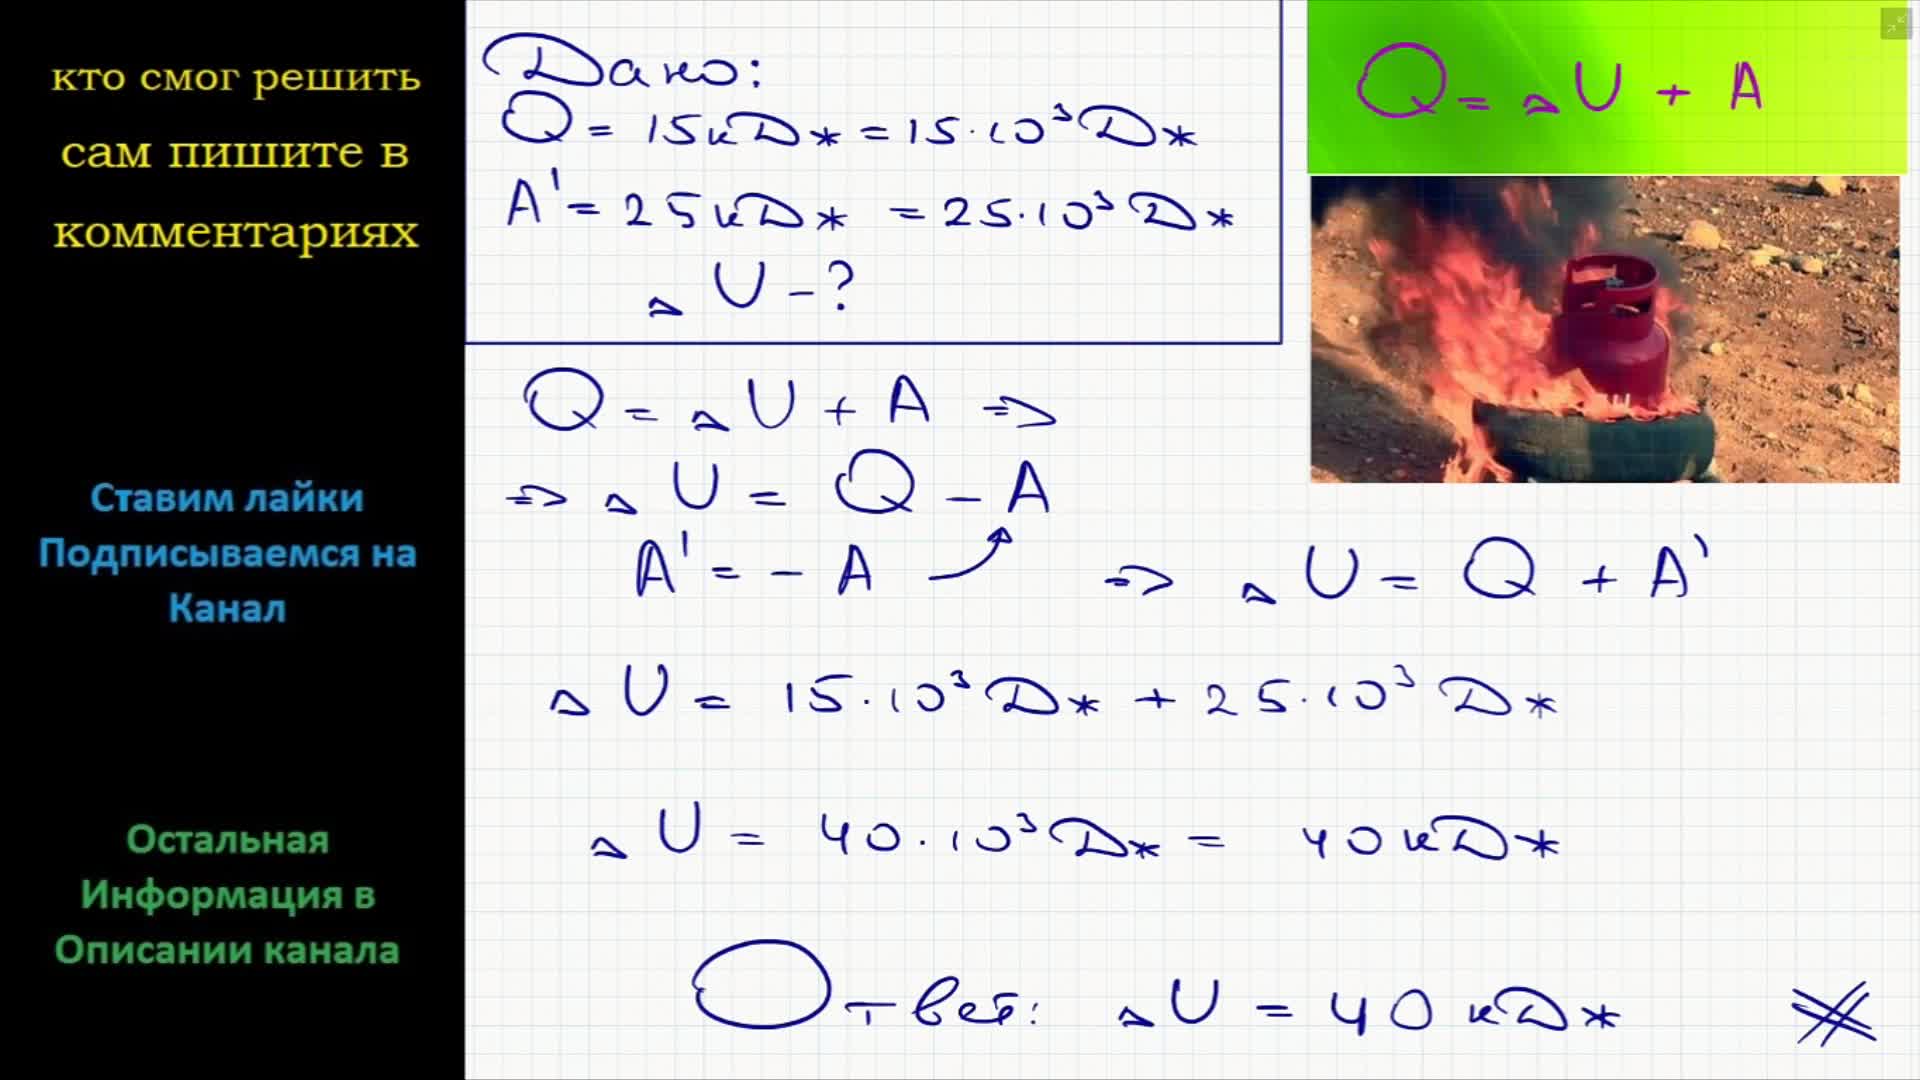 кто смог решить
сам пишите в
комментариях
Ставим лайки
Подписываемся на
Канал
Остальная
Информация в
Описании канала
Дано:
Q = 15кДж = 15·10³Дж
A' = 25кДж = 25·10³Дж
ΔU - ?
Q = ΔU + A
Q = ΔU + A ⇒
⇒ ΔU = Q - A
A' = - A ⇒ ΔU = Q + A'
ΔU = 15·10³Дж + 25·10³Дж
ΔU = 40·10³Дж = 40кДж
Ответ: ΔU = 40 кДж